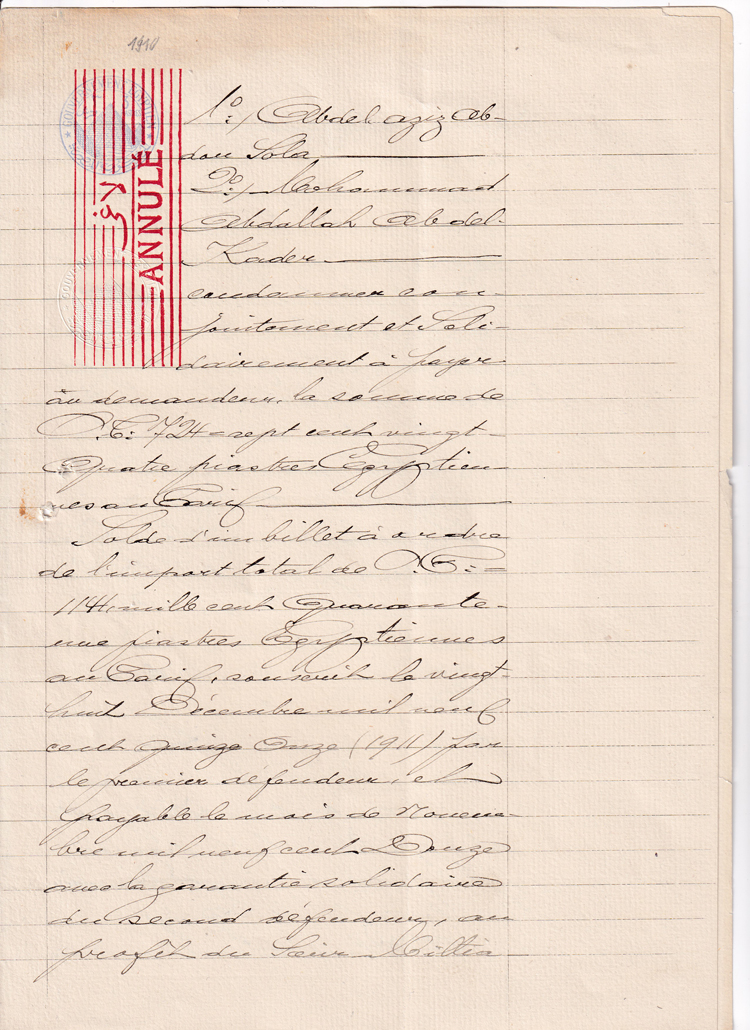 1910
ANNULÉ
لاغى
1º:/ Abdel aziz Ab-
dou Sola
2º:/ Mohammad
Abdallah Abdel-
Kader
condamner con-
jointement et Soli-
dairement à payer
au demandeur, la somme de
P.T: 724 = sept cent vingt-
quatre piastres Egyptien-
nes au Tarif
Solde d'un billet à ordre
de l'import total de P.T: =
1141, mille cent quarante-
une piastres Egyptiennes
au Tarif, souscrit le vingt-
huit Décembre mil neuf
cent quinze Onze (1911) par
le premier défendeur, et
payable le mois de Novem-
bre mil neuf cent Douze
avec la garantie solidaire
du second défendeur, au
profit du Sieur Miltia-